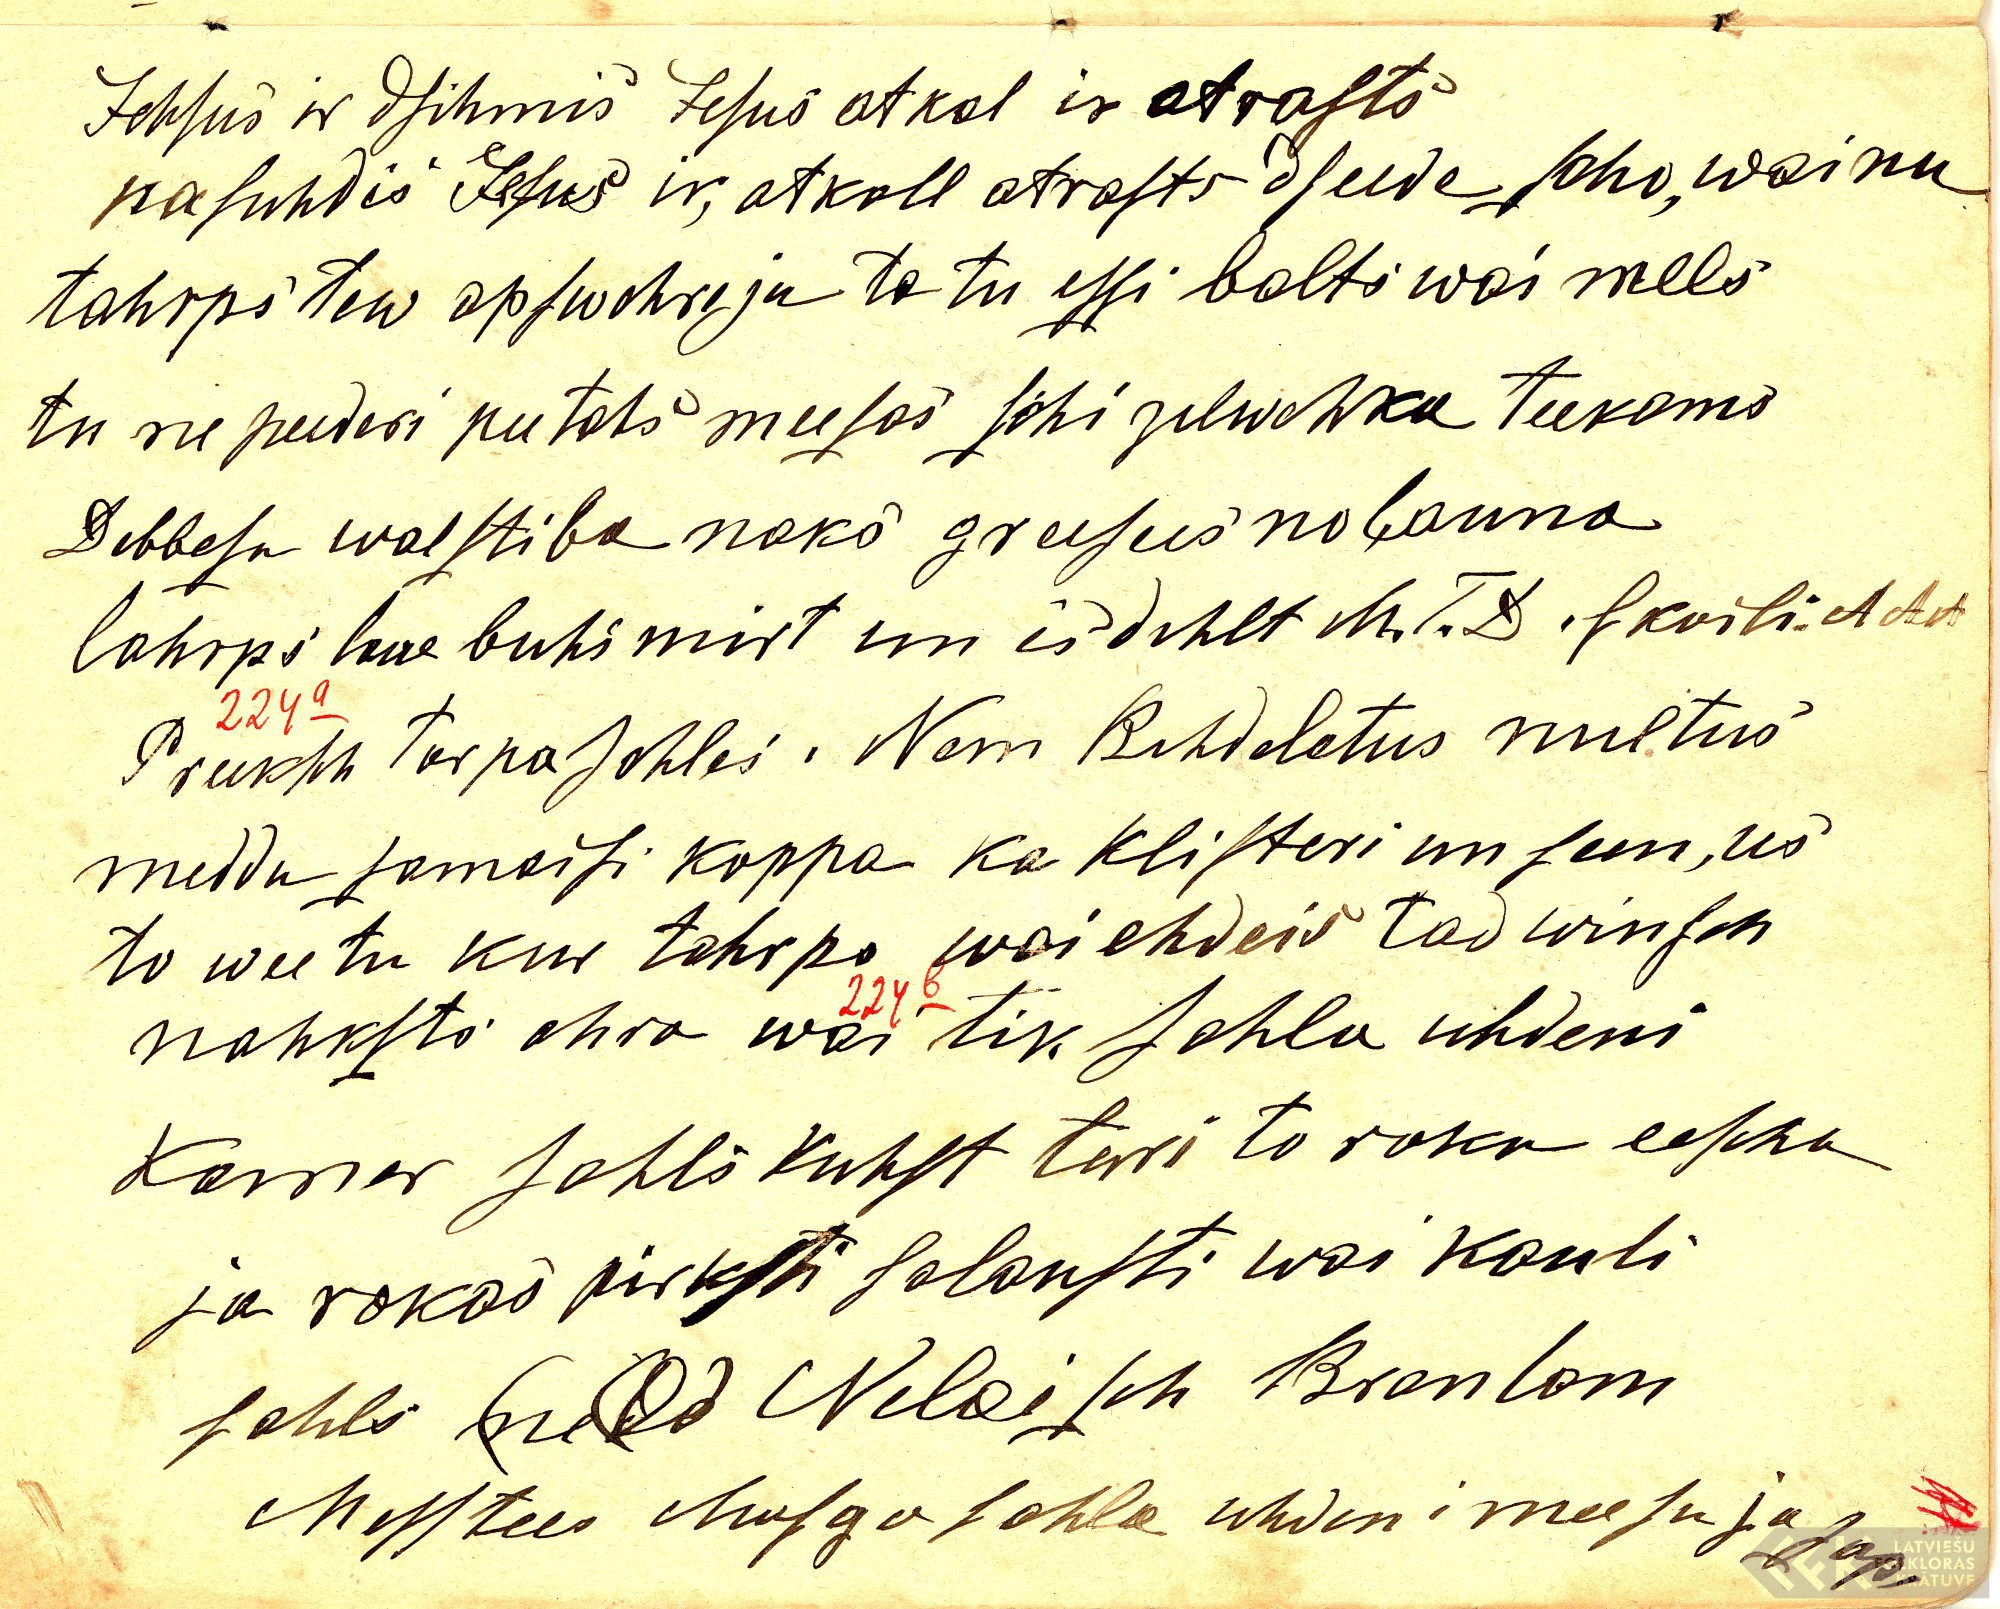 Jehsus ir dsihmis Jesus atkal ir atrasts
pasuhdis Jesus ir, atkall atrasts dseede scho, wainu
tahrps tew apswehreju ta tu essi balts wai mels
tu ne peederi pee tahs meesas schi zilwehka teekams
Debbesu walstiba naks greesees no launa
tahrps buhs mirt un isdehlt M. T. D. skaiti. A A A
224a
Preeksch tarpa sahles. Nem Behdeletus miltus
meddu samaisi koppa ka klisteri un seen, us
to weetu kur tahrps wai ehdeis tad winsch
224b
nahksts ahra wai tik sahla uhdeni
Kamer sahls kuhst turi to roku eekscha
ja rokas pirksti salausti wai kauli
sahls Nelaisch Branlam
Messtees Masga sahla uhdeni meesu ja sap.
LATVIEŠU
FOLKLORAS
KRĀTUVE